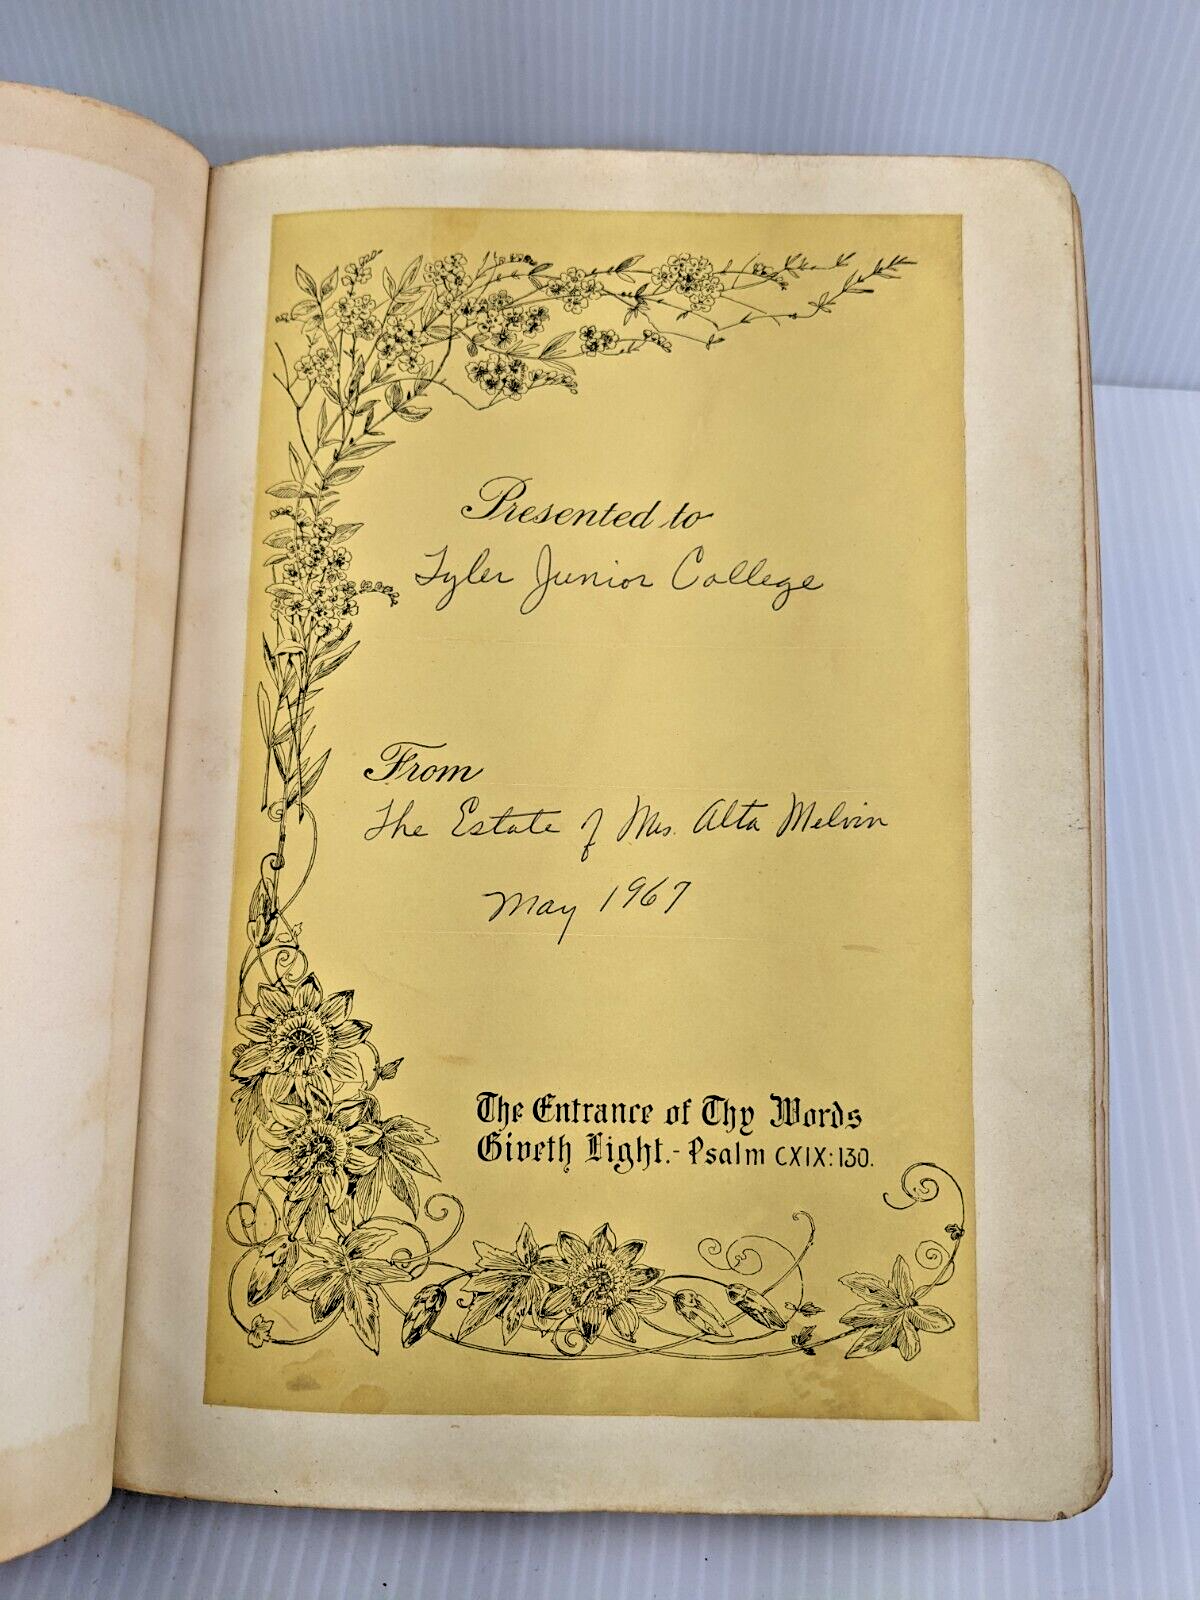 Presented to
Tyler Junior College
From
The Estate of Mrs. Alta Melvin
May 1967
The Entrance of Thy Words
Giveth Light.- Psalm CXIX:130.